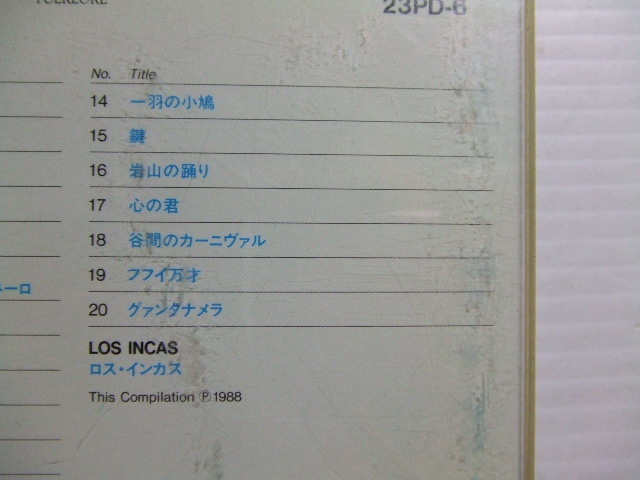 FOLKLORE
23PD-6
No. Title
14 一羽の小鳩
15 鍵
16 岩山の踊り
17 心の君
18 谷間のカーニヴァル
19 フフイ万才
ーロ
20 グァンタナメラ
LOS INCAS
ロス・インカス
This Compilation Ⓟ1988